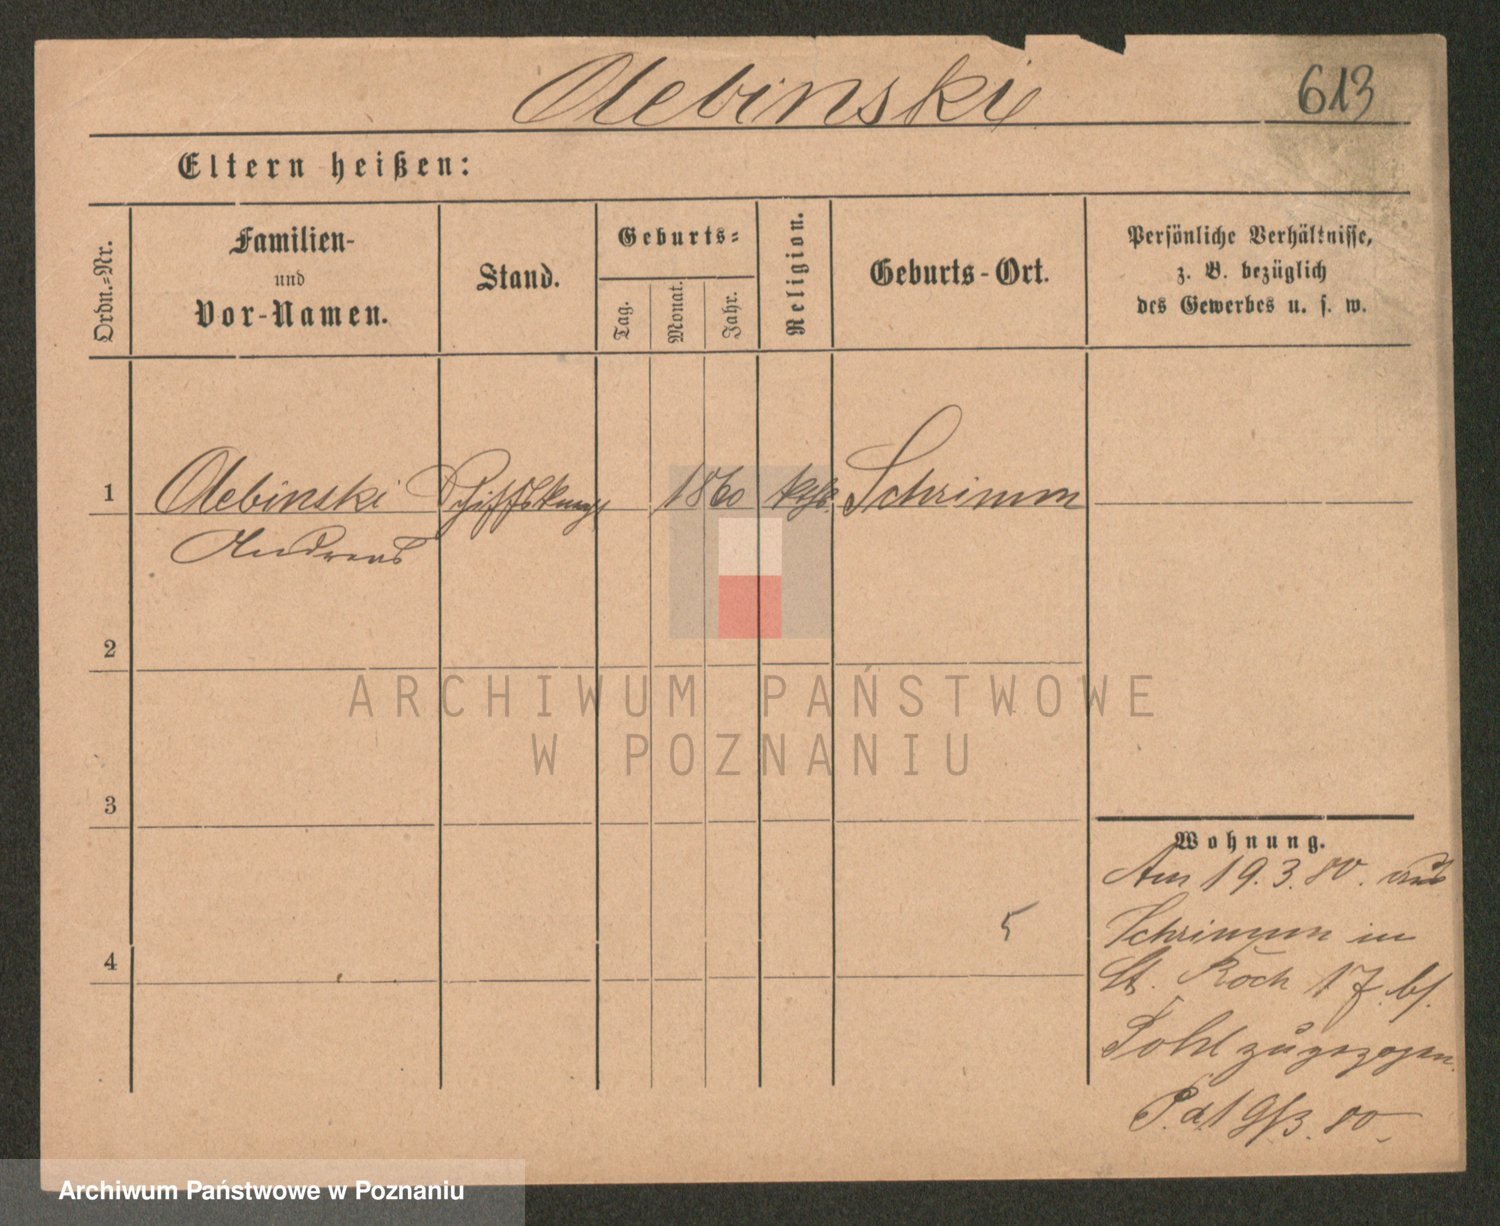 Olebinski
613
Eltern heißen:
Ordn.-Nr.
Familien-
und
Vor-Namen.
Stand.
Geburts-
Tag.
Monat.
Jahr.
Religion.
Geburts-Ort.
Persönliche Verhältnisse,
z. B. bezüglich
des Gewerbes u. s. w.
1
Olebinski Schiffsknecht 1860 kath. Schrimm
Andreas
2
3
4
5
Wohnung.
Am 19.3.80. aus
Schrimm in
St. Roch 17. bei
Pohl zugezogen.
P. d. 19/3. 80
ARCHIWUM PAŃSTWOWE
W POZNANIU
Archiwum Państwowe w Poznaniu